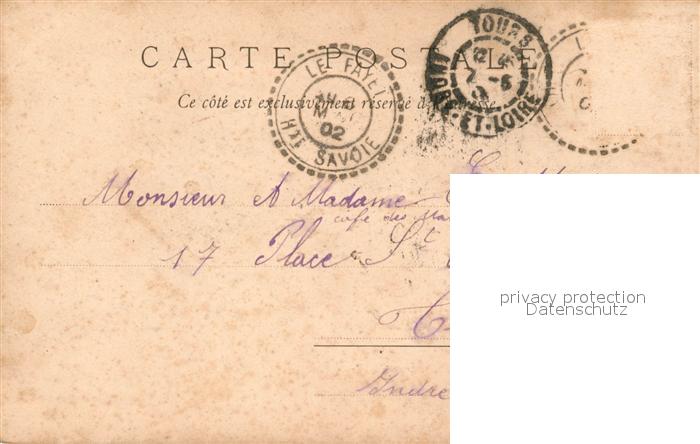 CARTE POSTALE
Ce côté est exclusivement réservé à l'adresse
LE FAYET
02
Hte SAVOIE
TOURS
INDRE-ET-LOIRE
Monsieur et Madame
café des
17 Place St
Indre
privacy protection
Datenschutz